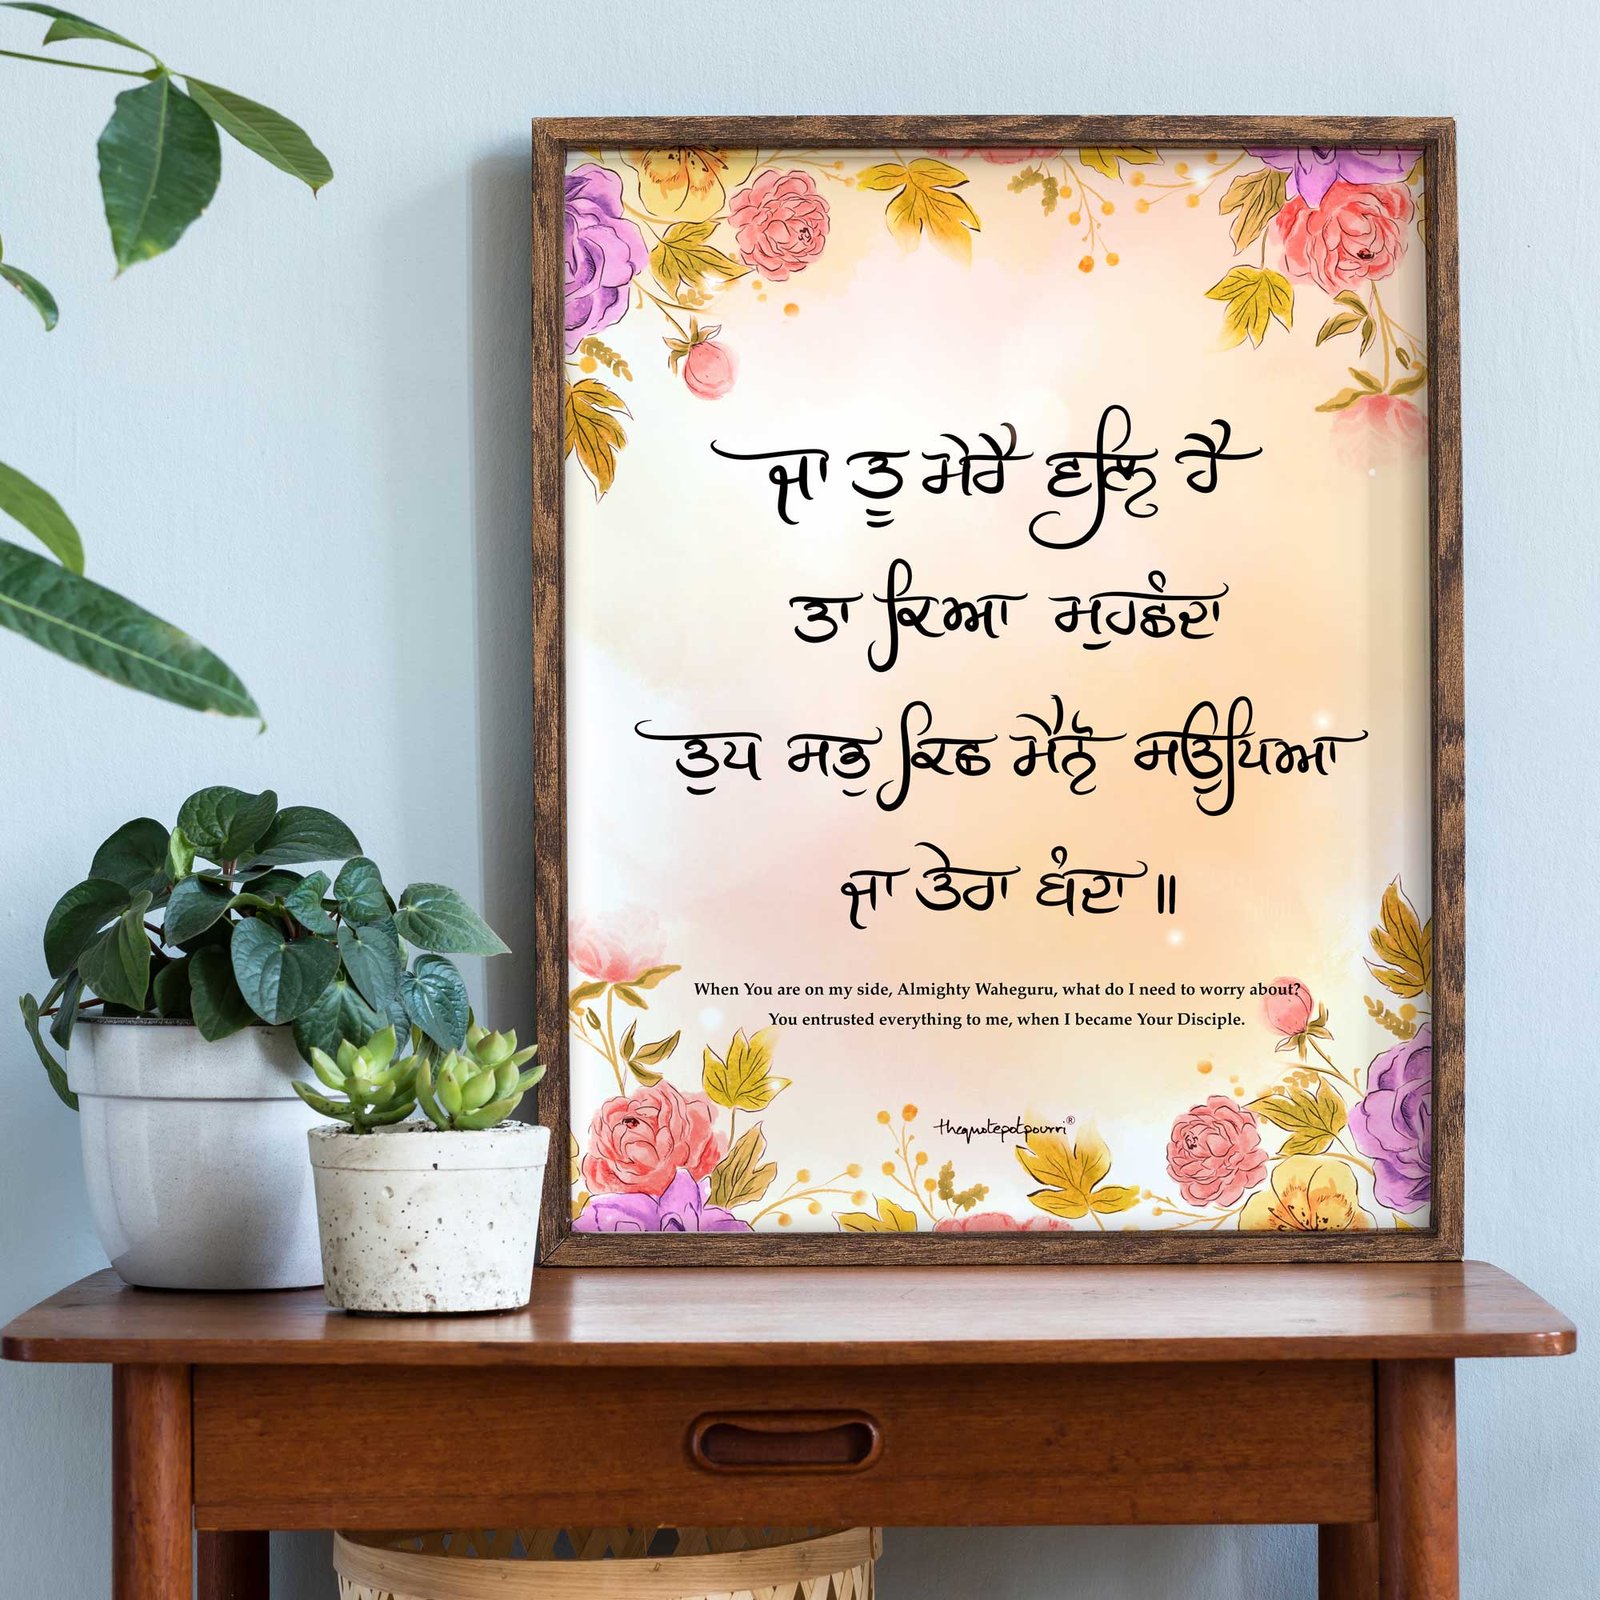 ਜਾ ਤੂ ਮੇਰੈ ਵਲਿ ਹੈ
ਤਾ ਕਿਆ ਮੁਹਛੰਦਾ
ਤੁਧ ਸਭੁ ਕਿਛ ਮੈਨੋ ਸਉਪਿਆ
ਜਾ ਤੇਰਾ ਬੰਦਾ ॥
When You are on my side, Almighty Waheguru, what do I need to worry about?
You entrusted everything to me, when I became Your Disciple.
thequotepotpourri®